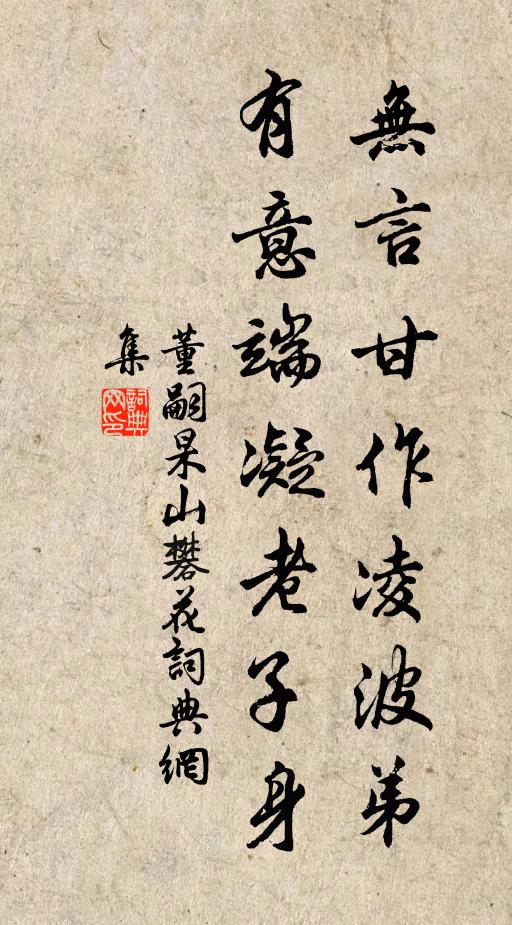 無言甘作凌波弟
有意端凝老子身
董嗣杲山礬花詞典網
集
詞典
網印